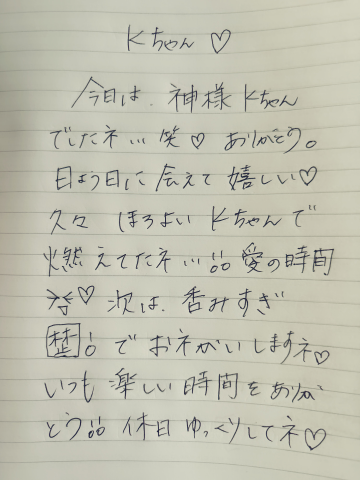 Kちゃん♡
今日は、神様Kちゃん
でしたネ…笑♡ ありがとう。
日よう日に会えて嬉しい♡
久々 ほろよいKちゃんで
燃えてたネ…!! 愛の時間
♡ 次は、呑みすぎ
禁!でおネがいしますネ♡
いつも楽しい時間をありが
とう!! 休日ゆっくりしてネ♡